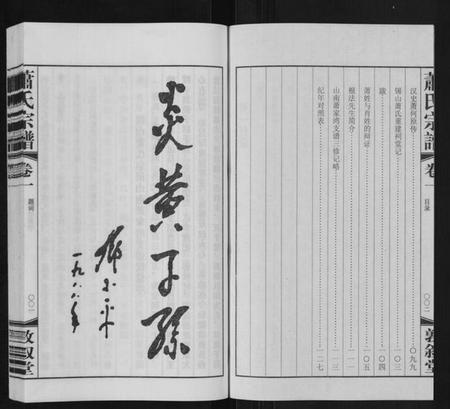 蕭氏宗譜
卷一
目录
〇〇二
敦叙堂
汉史萧何原传 〇九九
锡山萧氏重建祠堂记 一〇三
跋 一〇四
萧姓与肖姓的辩证 一〇五
根法先生简介 一一一
山南萧家湾支谱一修记略 一一三
纪年对照表 一二七
炎黄子孙
邓小平
一九八八年
蕭氏宗譜
卷一
题词
〇〇三
敦叙堂